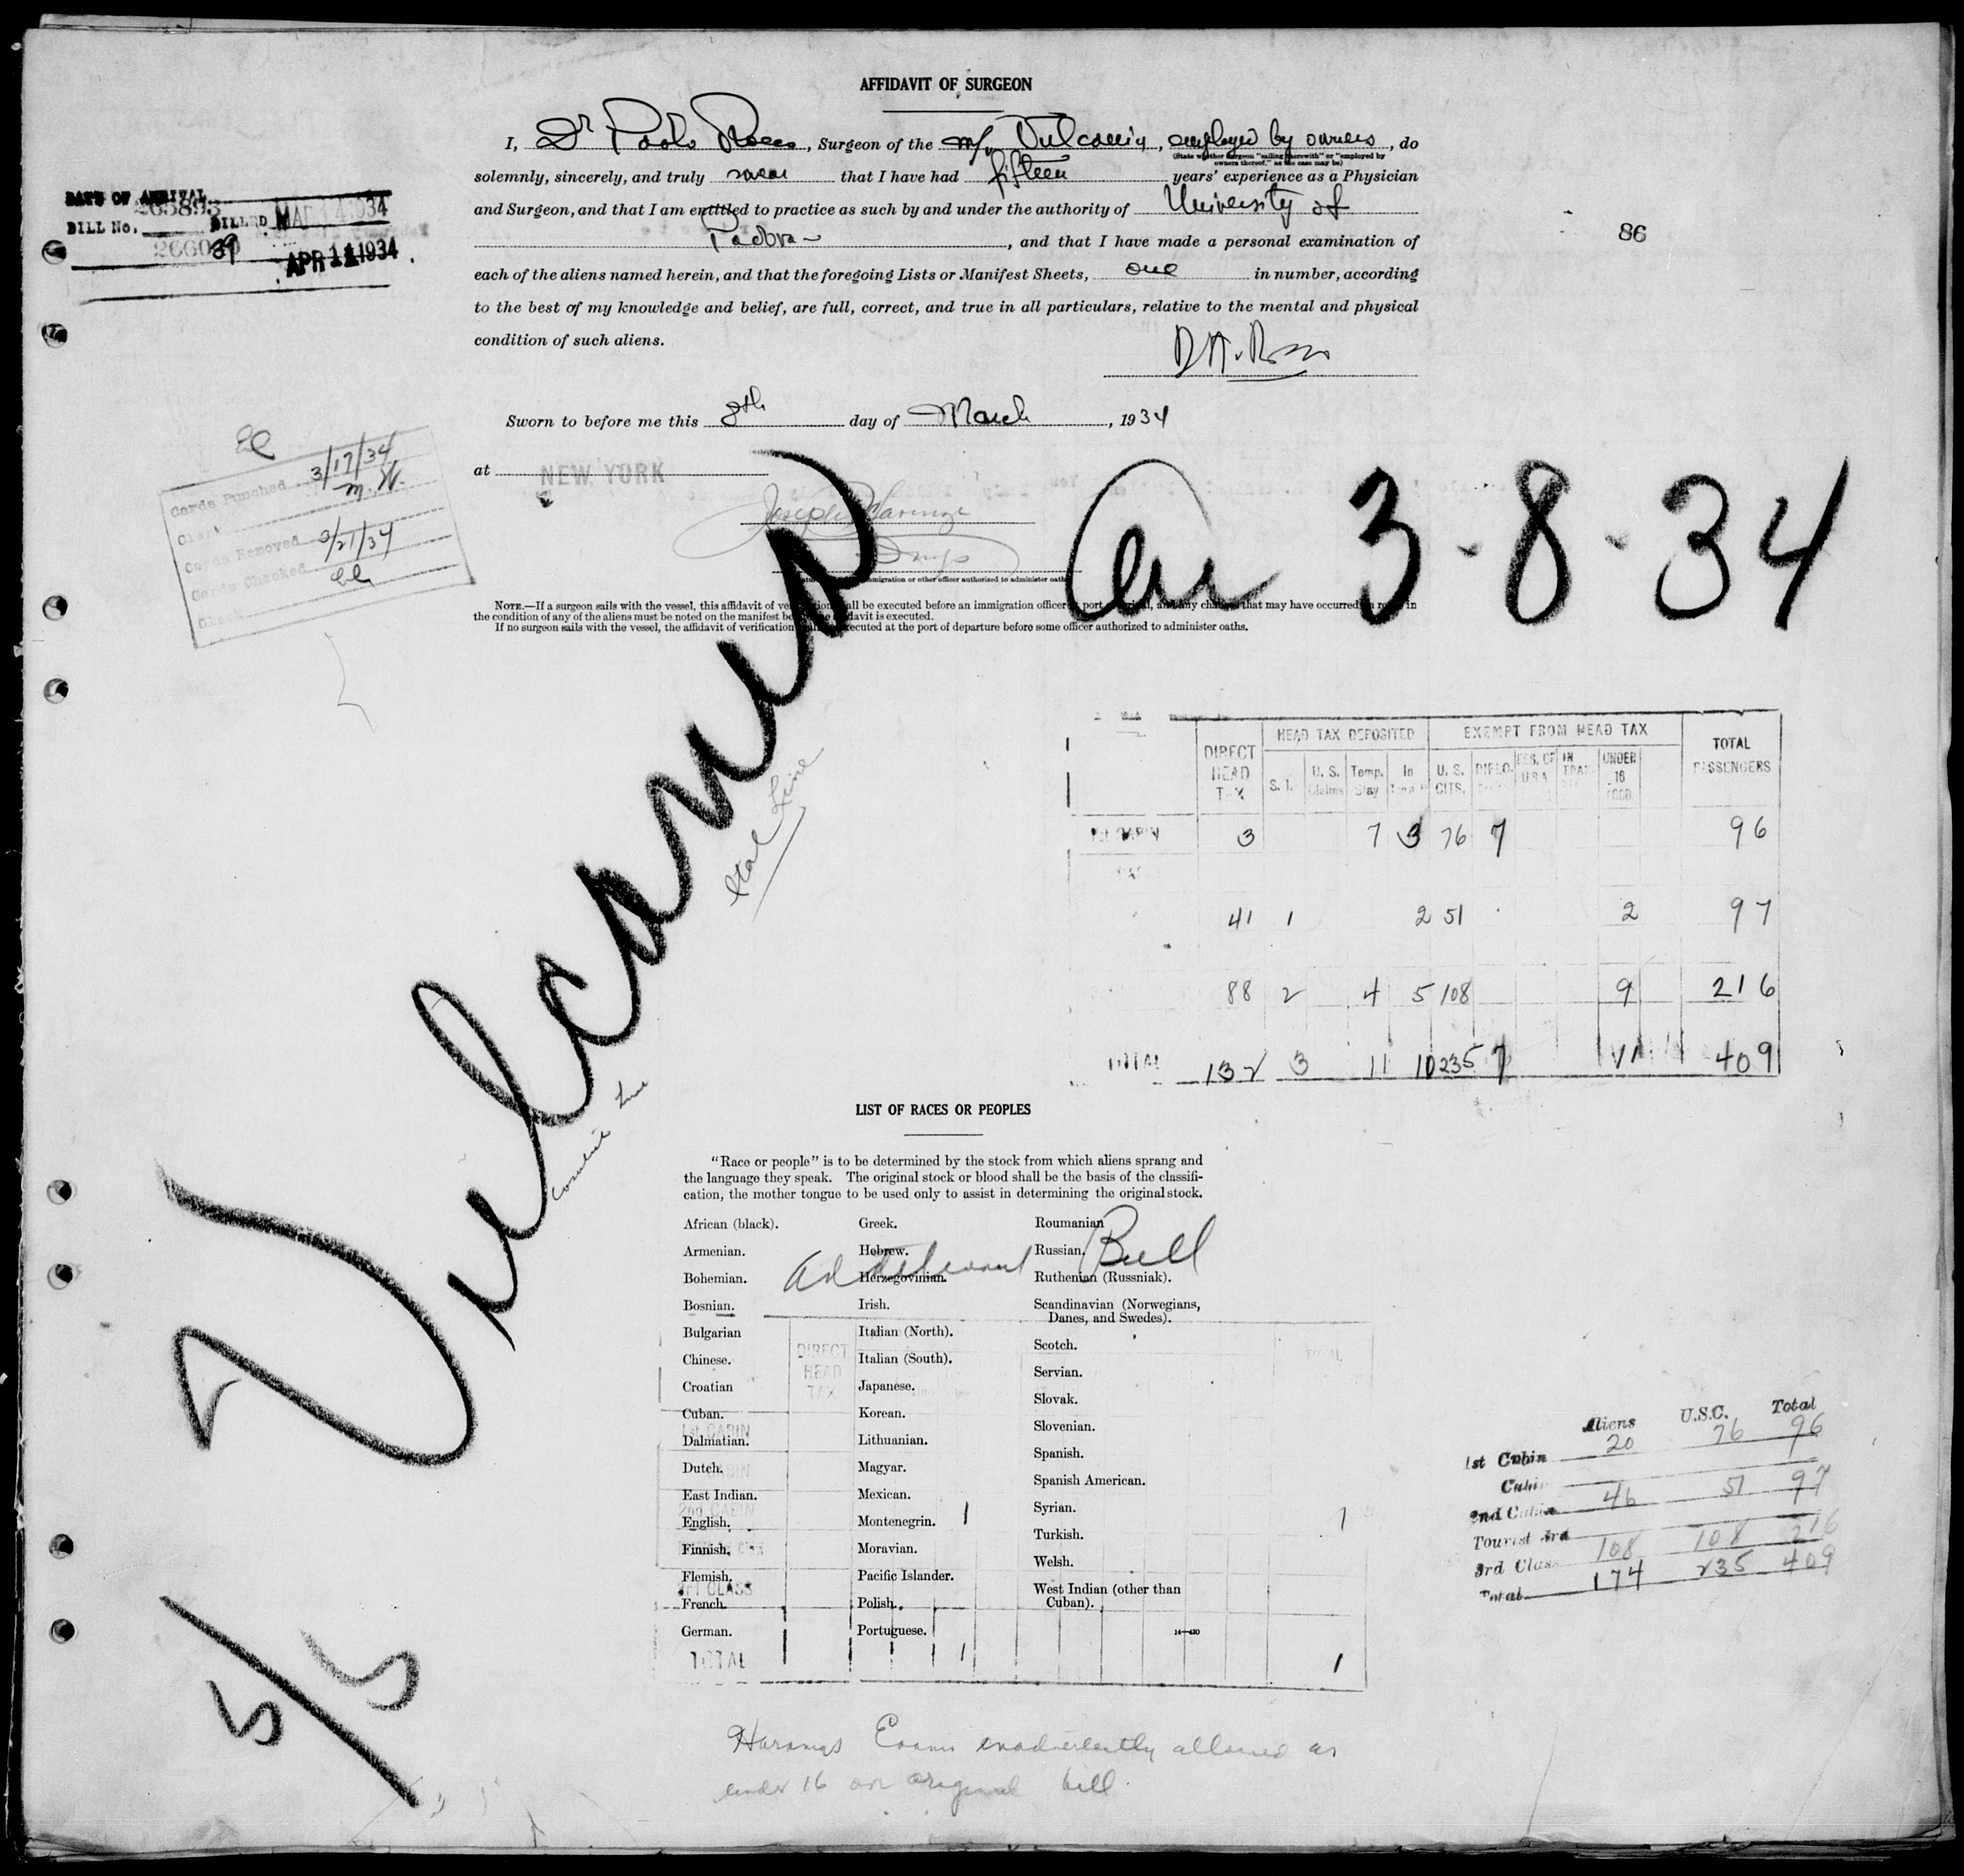 AFFIDAVIT OF SURGEON
I, Dr Paolo Rocco, Surgeon of the m/v Vulcania, employed by owners, do
(State whether surgeon "sailing therewith" or "employed by
owners thereof," as the case may be)
solemnly, sincerely, and truly swear that I have had fifteen years' experience as a Physician
and Surgeon, and that I am entitled to practice as such by and under the authority of University of
Padova, and that I have made a personal examination of
each of the aliens named herein, and that the foregoing Lists or Manifest Sheets, one in number, according
to the best of my knowledge and belief, are full, correct, and true in all particulars, relative to the mental and physical
condition of such aliens.
DATE OF ARRIVAL
BILL No. BILLED MAR 14 1934
APR 11 1934
86
Sworn to before me this 8th day of March, 1934
at NEW YORK
Cards Punched 3/17/34
Clerk M. W.
Cards Removed 3/21/34
Cards Checked
Clerk
immigration or other officer authorized to administer oaths
NOTE.—If a surgeon sails with the vessel, this affidavit of verification shall be executed before an immigration officer at port of arrival, and any changes that may have occurred en route in
the condition of any of the aliens must be noted on the manifest before affidavit is executed.
If no surgeon sails with the vessel, the affidavit of verification shall be executed at the port of departure before some officer authorized to administer oaths.
Vulcania
Arr 3-8-34
Ital Line
Cosulich Line
5/5
HEAD TAX DEPOSITED EXEMPT FROM HEAD TAX
DIRECT HEAD TAX S. I. U. S. Claims Temp. Stay In Trans U. S. CITS. DIPLO. RES. OF U S A IN TRAN- UNDER 16 TOTAL PASSENGERS
1st CABIN 3 7 3 76 7 96
41 1 2 51 2 97
88 2 4 5 108 9 216
TOTAL 132 3 11 10 235 7 11 409
LIST OF RACES OR PEOPLES
"Race or people" is to be determined by the stock from which aliens sprang and
the language they speak. The original stock or blood shall be the basis of the classifi-
cation, the mother tongue to be used only to assist in determining the original stock.
African (black).
Armenian.
Bohemian.
Bosnian.
Bulgarian
Chinese.
Croatian
Cuban.
Dalmatian.
Dutch.
East Indian.
English.
Finnish.
Flemish.
French.
German.
Greek.
Hebrew.
Herzegovinian.
Irish.
Italian (North).
Italian (South).
Japanese.
Korean.
Lithuanian.
Magyar.
Mexican.
Montenegrin.
Moravian.
Pacific Islander.
Polish.
Portuguese.
Roumanian
Russian.
Ruthenian (Russniak).
Scandinavian (Norwegians,
Danes, and Swedes).
Scotch.
Servian.
Slovak.
Slovenian.
Spanish.
Spanish American.
Syrian.
Turkish.
Welsh.
West Indian (other than
Cuban).
Additional Bill
DIRECT HEAD TAX TOTAL
1st CABIN
2nd CABIN 1 1
3rd CLASS
TOTAL 1 1
Aliens U.S.C. Total
1st Cabin 20 76 96
Cabin
2nd Cabin 46 51 97
Tourist 3rd
3rd Class 108 108 216
Total 174 235 409
inadvertently allowed as
under 16 on original bill.